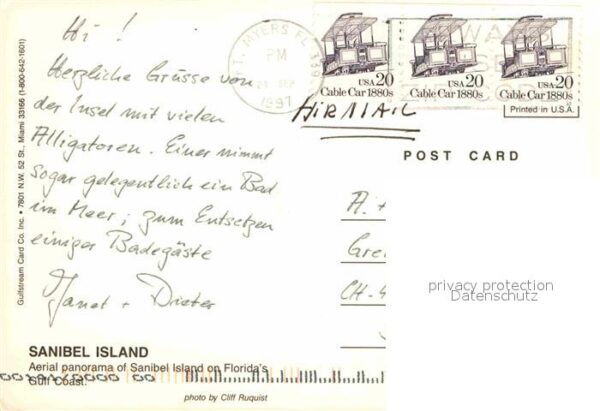 Hi !
Herzliche Grüsse von
der Insel mit vielen
Alligatoren. Einer nimmt
sogar gelegentlich ein Bad
im Meer; zum Entsetzen
einiger Badegäste
Janet + Dieter
SANIBEL ISLAND
Aerial panorama of Sanibel Island on Florida's
Gulf Coast.
photo by Cliff Ruquist
Gulfstream Card Co. Inc. • 7801 N.W. 52 St., Miami 33166 (1-800-642-1601)
FT. MYERS FL
PM
SEP
1997
USA 20
Cable Car 1880s
USA 20
Cable Car 1880s
USA 20
Cable Car 1880s
Printed in U.S.A.
AIRMAIL
POST CARD
A. +
Gre
CH-
privacy protection
Datenschutz